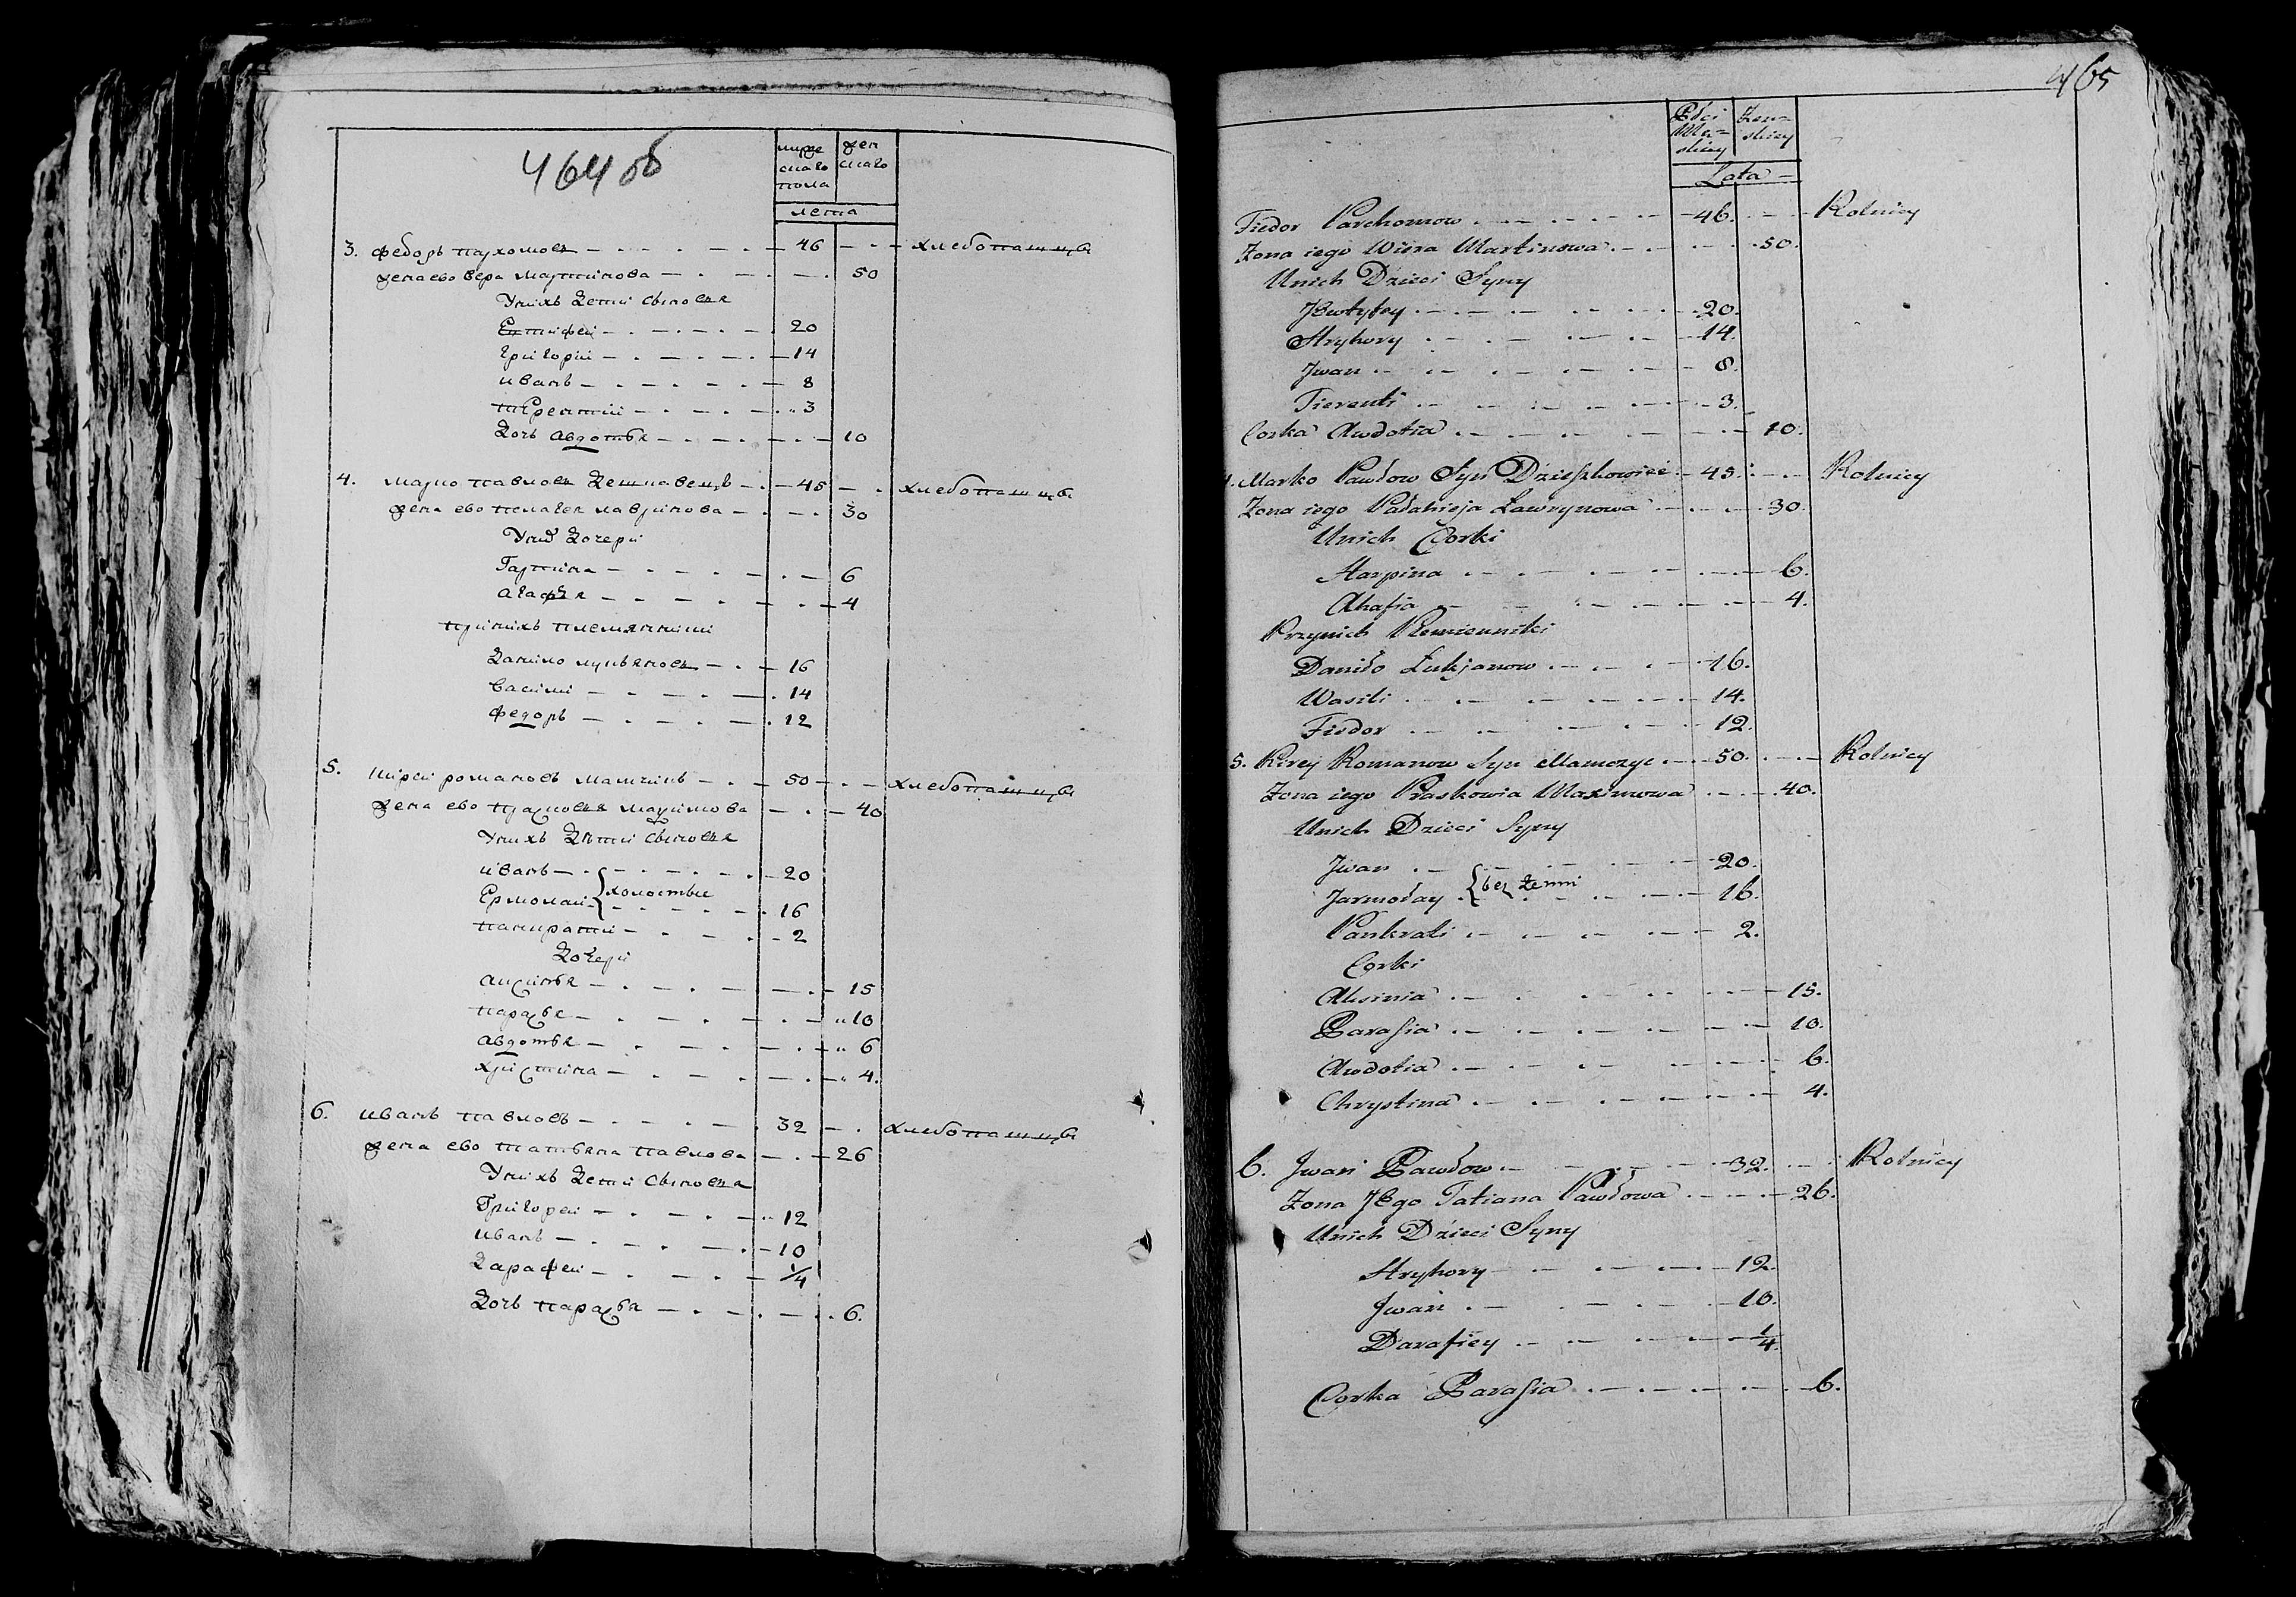 464 об
муже
скаго
пола
жен
скаго
лета
3. федоръ пархомовъ 46 хлебопашцы
жена ево вера мартинова 50
У нихъ дети сыновья
Евтифеи 20
григории 14
иванъ 8
терентии 3
дочь авдотья 10
4. марко павловъ дешковецъ 45 хлебопашцы
жена ево пелагея лавринова 30
У нихъ дочери
Гарпина 6
агафья 4
при нихъ племянники
данило лукьяновъ 16
василий 14
федоръ 12
5. кирей романовъ мамчицъ 50 хлебопашцы
жена ево прасковья маximова 40
У нихъ дети сыновья
иванъ 20
холостые
Ермолай 16
панкратии 2
дочери
аксинья 15
парасья 10
авдотья 6
христина 4.
6. иванъ павловъ 32 хлебопашцы
жена ево татьяна павлова 26
У нихъ дети сыновья
Григореи 12
иванъ 10
дарафеи 1/4
дочь парасья 6.
465
Płci
Mę=
skiey
Żen=
skiey
Lata
Fiedor Parchomow 46. Rolnicy
Zona iego Wiera Martinowa 50.
Unich Dzieci Syny
Jewtyfey 20.
Hryhory 14.
Jwan 8.
Tierenti 3.
Corka Awdotia 10.
4. Marko Pawłow Syn Dzieszkowiec 45. Rolnicy
Zona iego Pałahieja Ławrynowa 30.
Unich Corki
Harpina 6.
Ahafia 4.
Przynich Plemienniki
Daniło Łukjanow 16.
Wasili 14.
Fiedor 12.
5. Kirey Romanow Syn Mamczyc 50. Rolnicy
Zona iego Praskowia Maximowa 40.
Unich Dzieci Syny
Jwan 20.
bez Żenni
Jarmołay 16.
Pankrati 2.
Corki
Aksinia 15.
Parasia 10.
Awdotia 6.
Chrystina 4.
6. Jwan Pawłow 32. Rolnicy
Zona JEgo Tatiana Pawłowa 26.
Unich Dzieci Syny
Hryhory 12.
Jwan 10.
Darafiey 1/4
Corka Parasia 6.